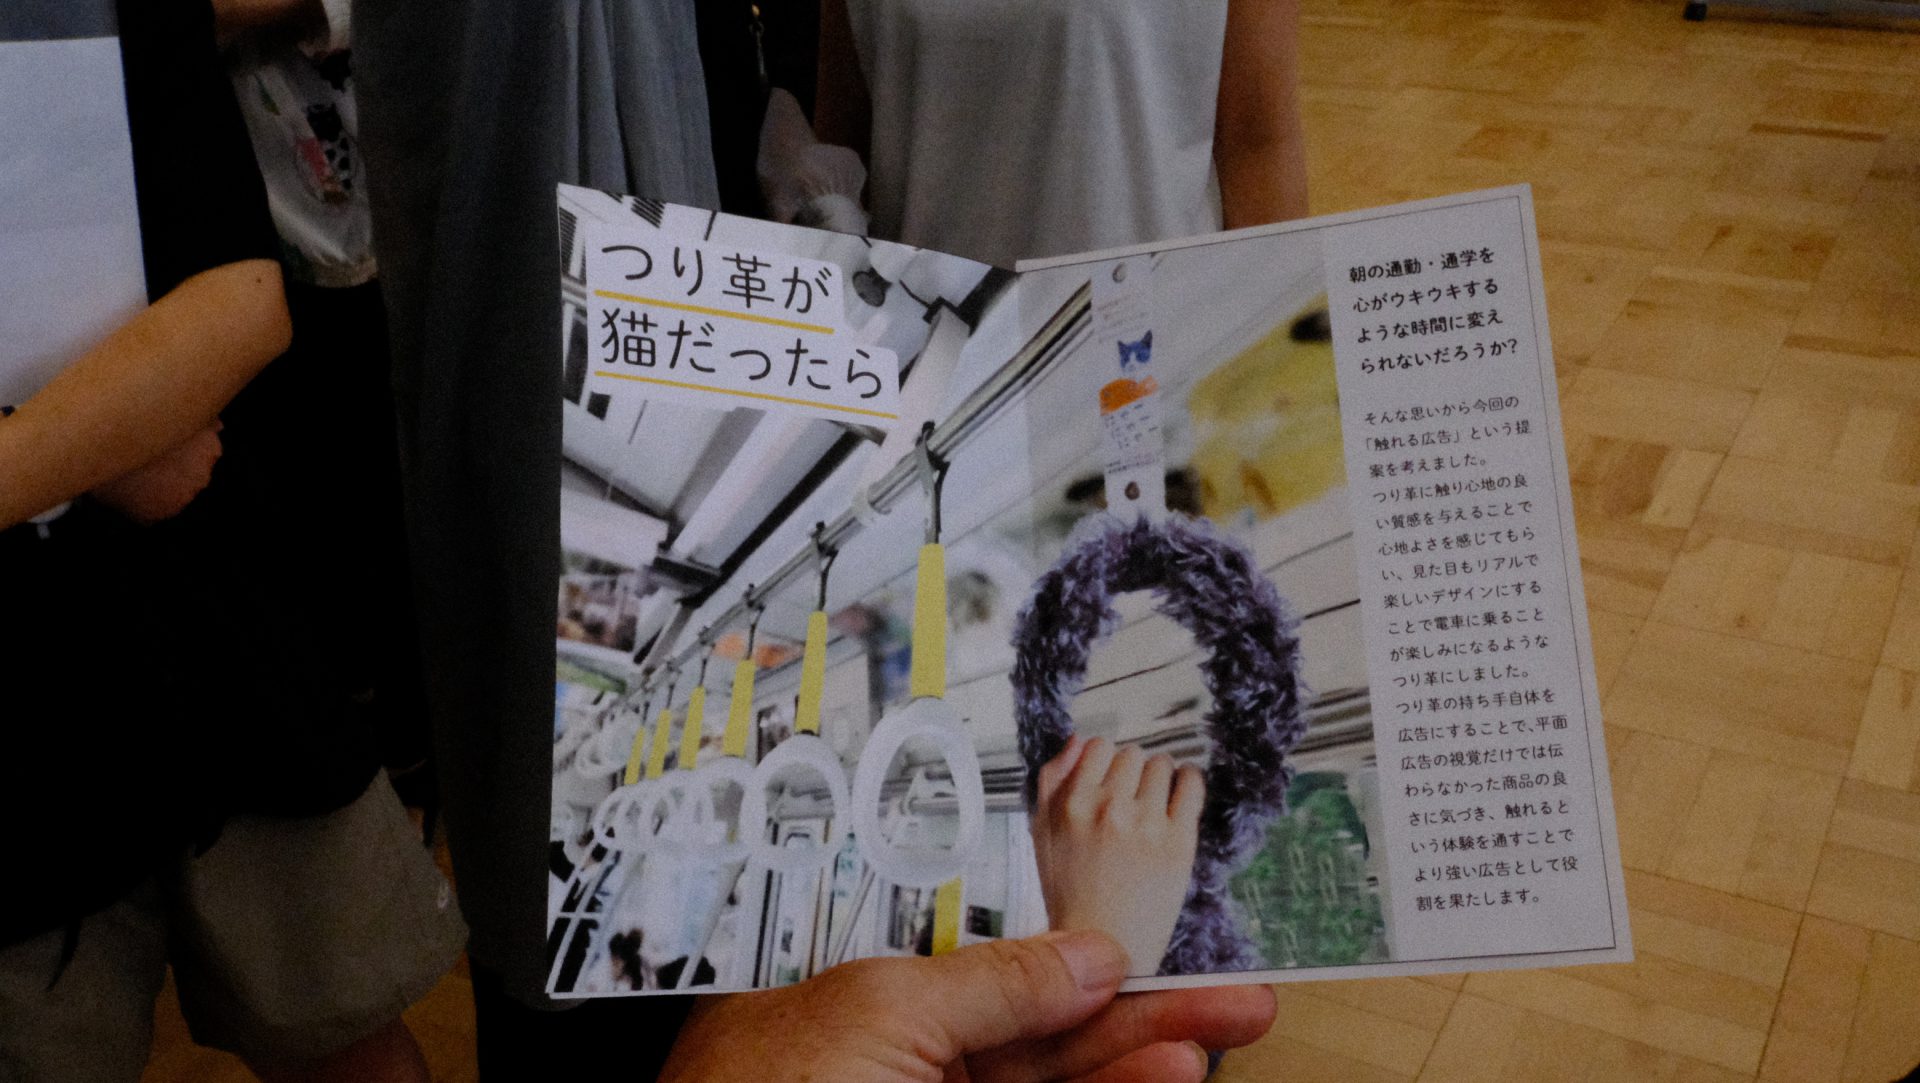 つり革が
猫だったら
朝の通勤・通学を
心がウキウキする
ような時間に変え
られないだろうか?
そんな思いから今回の
「触れる広告」という提
案を考えました。
つり革に触り心地の良
い質感を与えることで
心地よさを感じてもら
い、見た目もリアルで
楽しいデザインにする
ことで電車に乗ること
が楽しみになるような
つり革にしました。
つり革の持ち手自体を
広告にすることで、平面
広告の視覚だけでは伝
わらなかった商品の良
さに気づき、触れると
いう体験を通すことで
より強い広告として役
割を果たします。